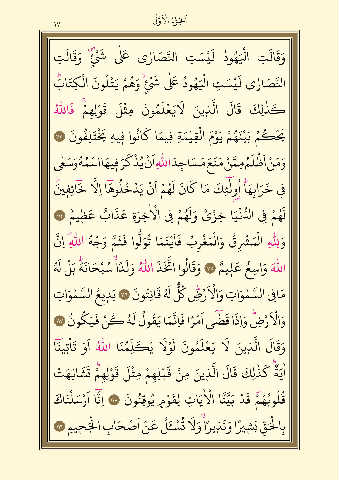 الجزء الأول ١٧
وَقَالَتِ الْيَهُودُ لَيْسَتِ النَّصَارٰى عَلٰى شَيْءٍۖ وَقَالَتِ
النَّصَارٰى لَيْسَتِ الْيَهُودُ عَلٰى شَيْءٍۙ وَهُمْ يَتْلُونَ الْكِتَابَۜ
كَذٰلِكَ قَالَ الَّذِينَ لَا يَعْلَمُونَ مِثْلَ قَوْلِهِمْۚ فَاللّٰهُ
يَحْكُمُ بَيْنَهُمْ يَوْمَ الْقِيٰمَةِ فِيمَا كَانُوا فِيهِ يَخْتَلِفُونَ ﴿١١٣﴾
وَمَنْ اَظْلَمُ مِمَّنْ مَنَعَ مَسَاجِدَ اللّٰهِ اَنْ يُذْكَرَ فِيهَا اسْمُهُ وَسَعٰى
فِي خَرَابِهَاۜ اُو۬لٰٓئِكَ مَا كَانَ لَهُمْ اَنْ يَدْخُلُوهَٓا اِلَّا خَٓائِفِينَۜ
لَهُمْ فِي الدُّنْيَا خِزْيٌ وَلَهُمْ فِي الْاٰخِرَةِ عَذَابٌ عَظِيمٌ ﴿١١٤﴾
وَلِلّٰهِ الْمَشْرِقُ وَالْمَغْرِبُ فَاَيْنَمَا تُوَلُّوا فَثَمَّ وَجْهُ اللّٰهِۜ اِنَّ
اللّٰهَ وَاسِعٌ عَلِيمٌ ﴿١١٥﴾ وَقَالُوا اتَّخَذَ اللّٰهُ وَلَدًاۙ سُبْحَانَهُۜ بَلْ لَهُ
مَا فِي السَّمٰوَاتِ وَالْاَرْضِۜ كُلٌّ لَهُ قَانِتُونَ ﴿١١٦﴾ بَدِيعُ السَّمٰوَاتِ
وَالْاَرْضِۜ وَاِذَا قَضٰٓى اَمْرًا فَاِنَّمَا يَقُولُ لَهُ كُنْ فَيَكُونُ ﴿١١٧﴾
وَقَالَ الَّذِينَ لَا يَعْلَمُونَ لَوْلَا يُكَلِّمُنَا اللّٰهُ اَوْ تَأْتِينَٓا
اٰيَةٌۜ كَذٰلِكَ قَالَ الَّذِينَ مِنْ قَبْلِهِمْ مِثْلَ قَوْلِهِمْۜ تَشَابَهَتْ
قُلُوبُهُمْۜ قَدْ بَيَّنَّا الْاٰيَاتِ لِقَوْمٍ يُوقِنُونَ ﴿١١٨﴾ اِنَّٓا اَرْسَلْنَاكَ
بِالْحَقِّ بَشِيرًا وَنَذِيرًاۙ وَلَا تُسْـَٔلُ عَنْ اَصْحَابِ الْجَحِيمِ ﴿١١٩﴾